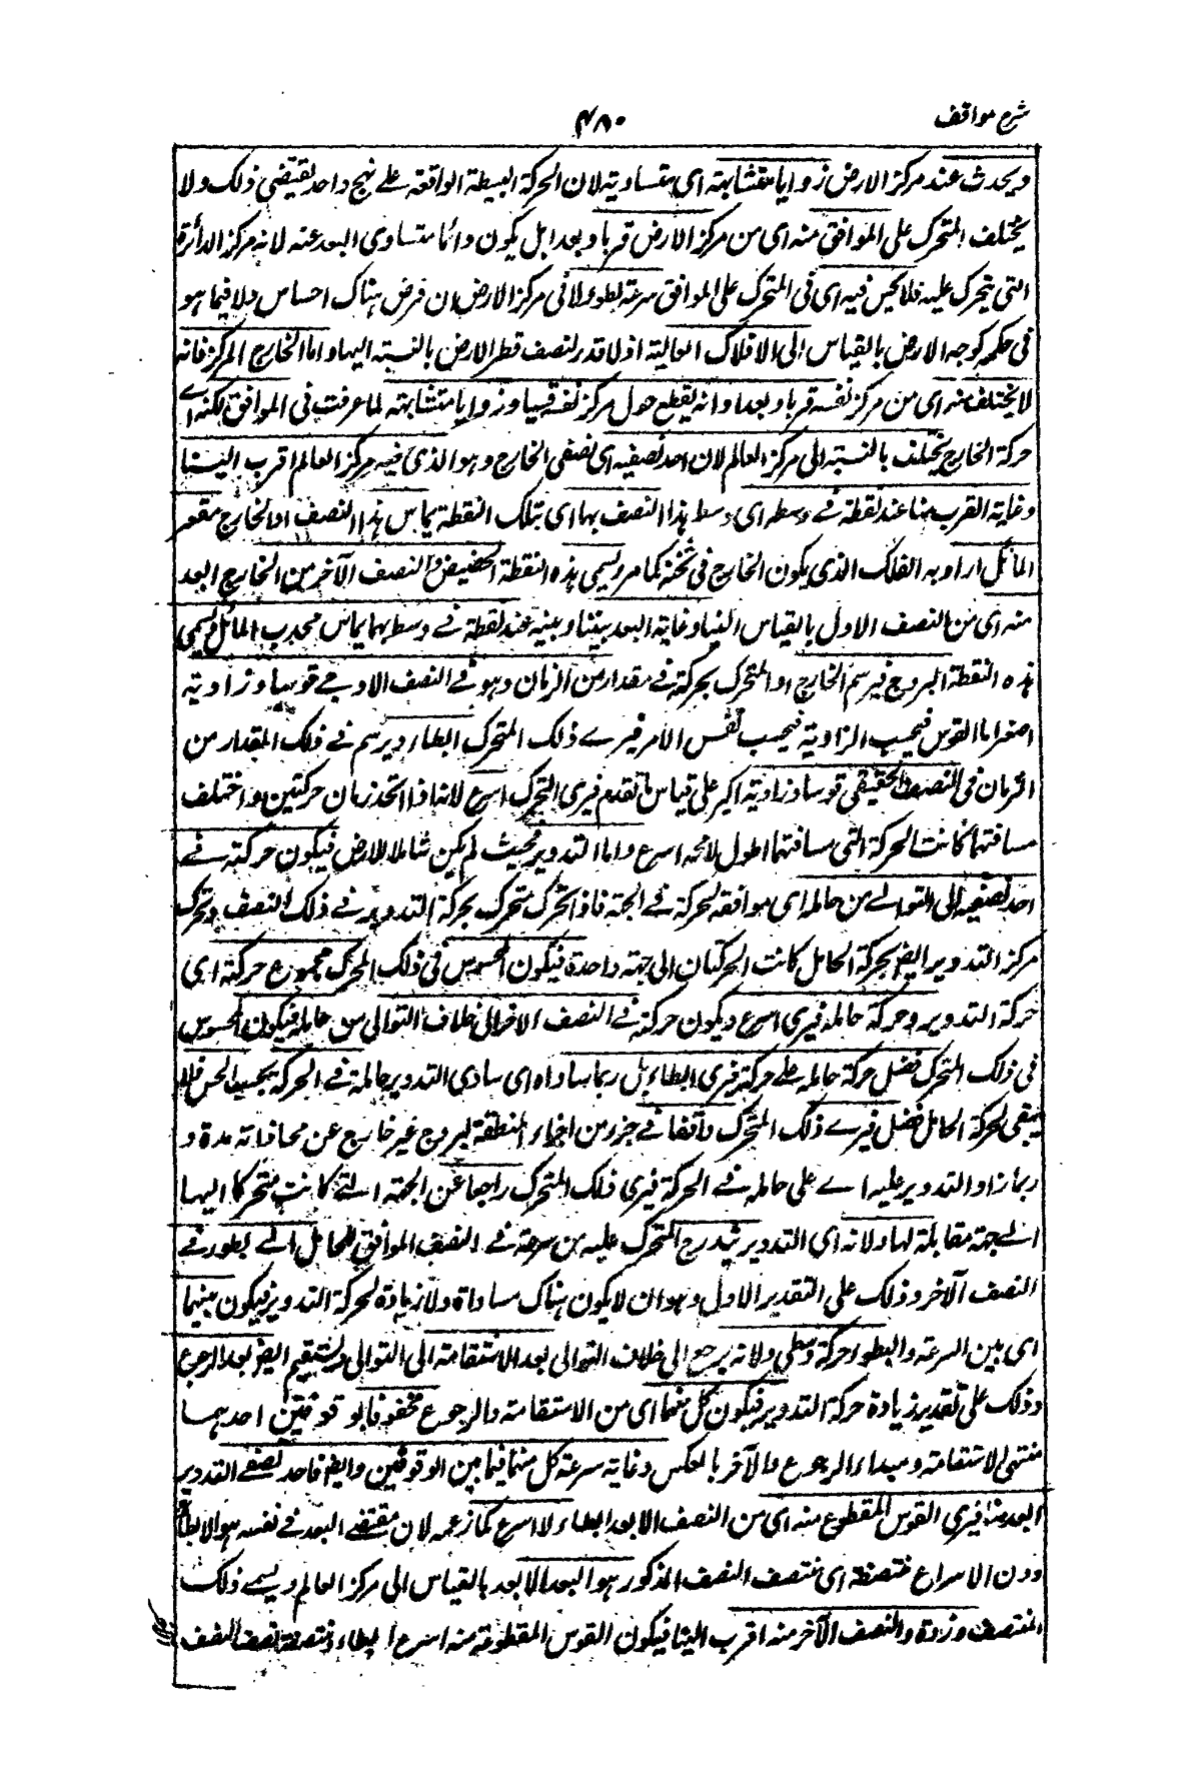 شرح مواقف
۴۸۰
ويحدث عند مركز الارض زوايا متشابهة اى متساوية لان الحركة البسيطة الواقعة على نهج واحد تقتضى ذلك ولا
يختلف المتحرك على الموافق منه اى من مركز الارض قربا وبعدا بل يكون دائما متساوى البعد عنه لانه مركز الدائرة
التى يتحرك عليه فلا يحس فيه اى فى المتحرك على الموافق سرعة بطوء لا فى مركز الارض ان فرض هناك احساس ولا فيما هو
فى حكمه كوجه الارض بالقياس الى الافلاك العالية اذ لا قدر لنصف قطر الارض بالنسبة اليها واما الخارج المركز فانه
لا يختلف منه اى من مركز نفسه قربا وبعدا وانه يقطع حول مركز نفسه قسيا وزوايا متشابهة لما عرفت فى الموافق لكنه اے
حركة الخارج يختلف بالنسبة الى مركز العالم لان احد نصفيه اى نصفى الخارج وهو الذى فيه مركز العالم اقرب الينا
وغاية القرب منا عند نقطة فے وسطه اى وسط هذا النصف بها اى بتلك النقطة يماس هذا النصف او الخارج مقعر
المائل اراد به الفلك الذى يكون الخارج فى ثخنه كما مر ويسمى هذه النقطة الحضيض والنصف الآخر من الخارج ابعد
منه اى من النصف الاول بالقياس الينا وغاية البعد بيننا وبينه عند نقطة فے وسط بها يماس محدب المائل ويسمى
هذه النقطة البروج فيرسم الخارج او المتحرك بحركته فے مقدار من الزمان وهو فے النصف الاوجے قوسا وزاوية
اصغر اما القوس فبحسب الزاوية فبحسب نفس الامر فيرے ذلك المتحرك ابطاء ويرسم فے ذلك المقدار من
الزمان فى النصف الحضيضى قوسا وزاوية اكبر على قياس ما تقدم فيرى المتحرك اسرع لانه اذا اتحد زمان حركتين واختلف
مسافتهما كانت الحركة التى مسافتها اطول لا محه اسرع واما التدوير فحيث لم يكن شاملا للارض فيكون حركته فے
احد نصفيه الى التوالے من حامله اى موافقة لحركته فے الجهة فاذا تحرك متحرك بحركة التدوير فے ذلك النصف ويتحرك
مركز التدوير ايض بحركة الحامل كانت الحركتان الى جهة واحدة فيكون المحسوس فى ذلك المتحرك مجموع حركته اى
حركة التدوير وحركة حامله فيرى اسرع ويكون حركته فے النصف الاخر الى خلاف التوالى من حامله فيكون المحسوس
فى ذلك المتحرك فضل حركة حامله على حركته فيرى ابطاء بل ربما ساواه اى ساوى التدوير حامله فے الحركة بحسب الحس فلا
يبقى لحركة الحامل فضل فيرے ذلك المتحرك واقفا فے جزء من اجزاء المنطقة لبروج غير خارج عن محاذاته مدة و
ربما زاد التدوير عليه اے على حامله فے الحركة فيرى ذلك المتحرك راجعا عن الجهة التے كانت متحركا اليها
الے جهة مقابلة لها ولانه اى التدوير يتدرج المتحرك عليه من سرعة فے النصف الموافق للحامل الے بطوء فے
النصف الآخر وذلك على التقدير الاول وهو ان لا يكون هناك مساواة ولا زيادة لحركة التدوير فيكون بينهما
اى بين السرعة والبطوء حركة وسطى ولانه يرجع الى خلاف التوالى بعد الاستقامة الى التوالى ويستقيم ايض بعد الرجوع
وذلك على تقدير زيادة حركة التدوير فيكون كل منهما اى من الاستقامة والرجوع محفوفا بوقوفين احدهما
منتهى الاستقامة ومبداء الرجوع والآخر بالعكس وغاية سرعة كل منهما فيما بين الوقوفين وايض فاحد نصفے التدوير
ابعد منا فيرى القوس المقطوع منه اى من النصف الابعد ابطاء لا اسرع كما زعمه لان مقتضے البعد فے نفسه هو الابطاء
ودون الاسراع منتصفه اى منتصف النصف المذكور هو البعد الابعد بالقياس الى مركز العالم ويسمے ذلك
المنتصف وزوة والنصف الآخر منه اقرب الينا فيكون القوس المقطوعة منه اسرع ابطاء ومنتصفه نصف النصف